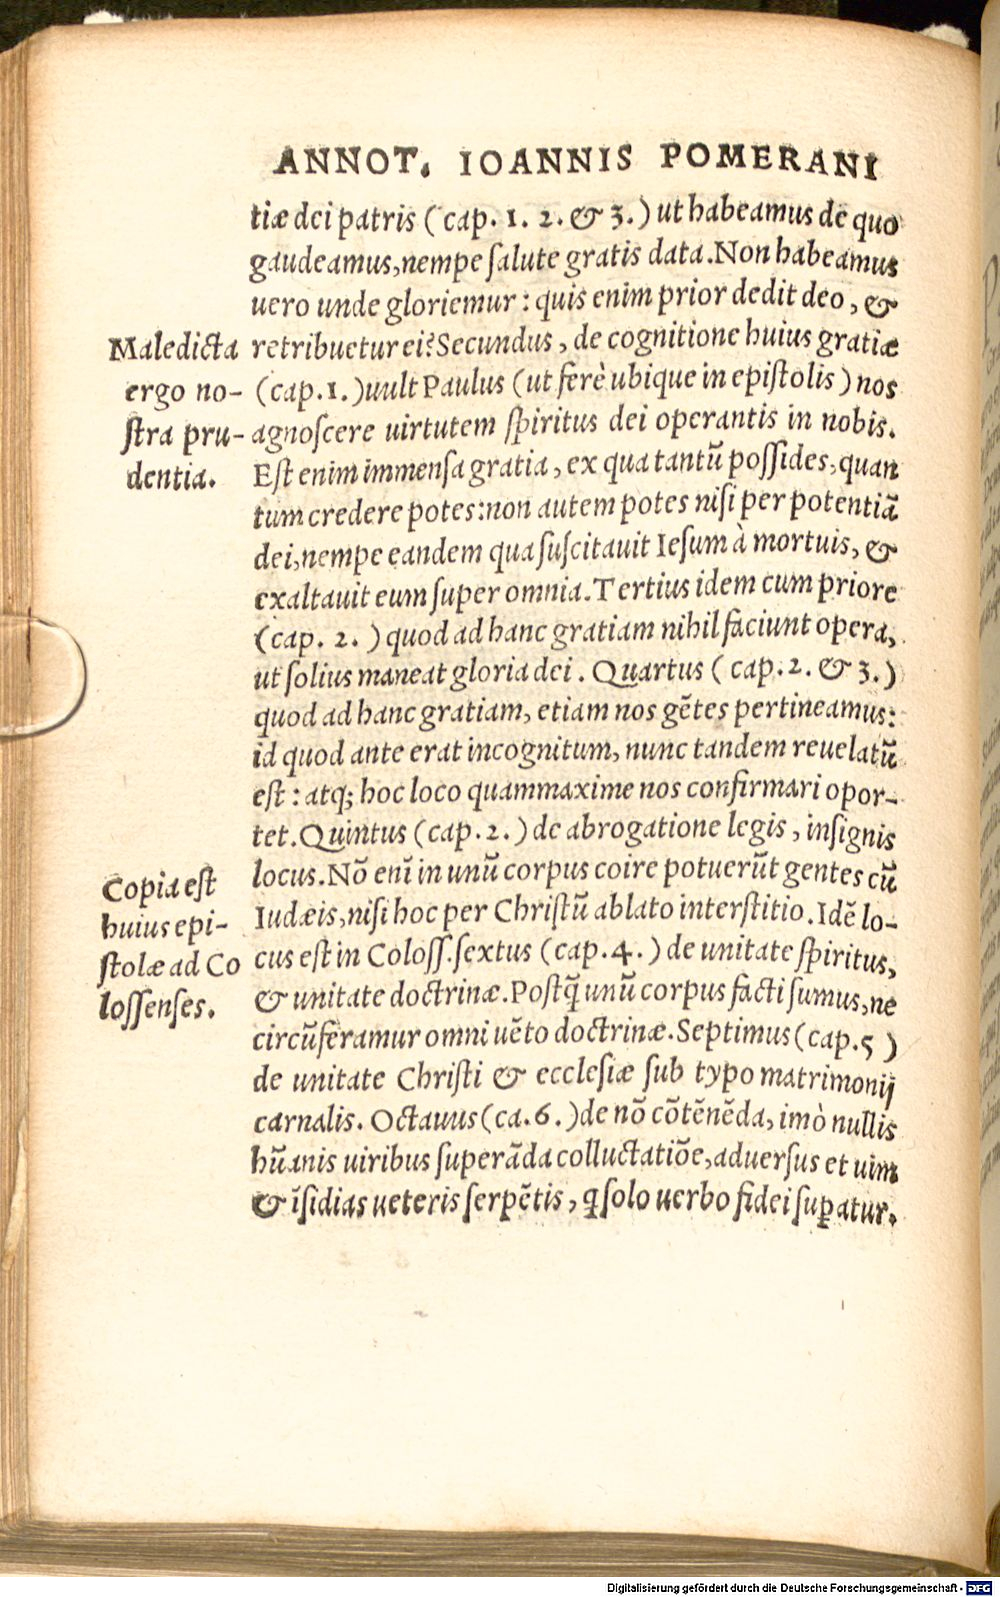 ANNOT. IOANNIS POMERANI
tiæ dei patris (cap. 1. 2. & 3.) ut habeamus de quo
gaudeamus, nempe ſalute gratis data. Non habeamus
uero unde gloriemur: quis enim prior dedit deo, &
retribuetur ei? Secundus, de cognitione huius gratiæ
(cap. 1.) uult Paulus (ut ferè ubique in epiſtolis) nos
agnoſcere uirtutem ſpiritus dei operantis in nobis.
Eſt enim immenſa gratia, ex qua tantũ poſſides, quan
tum credere potes: non autem potes niſi per potentiã
dei, nempe eandem qua ſuſcitauit Ieſum à mortuis, &
exaltauit eum ſuper omnia. Tertius idem cum priore
(cap. 2.) quod ad hanc gratiam nihil faciunt opera,
ut ſolius maneat gloria dei. Quartus (cap. 2. & 3.)
quod ad hanc gratiam, etiam nos gẽtes pertineamus:
id quod ante erat incognitum, nunc tandem reuelatũ
eſt: atq; hoc loco quammaxime nos confirmari opor-
tet. Quintus (cap. 2.) de abrogatione legis, inſignis
locus. Nõ enĩ in unũ corpus coire potuerũt gentes cũ
Iudæis, niſi hoc per Chriſtũ ablato interſtitio. Idẽ lo-
cus eſt in Coloſſ. ſextus (cap. 4.) de unitate ſpiritus,
& unitate doctrinæ. Poſtq̃ unũ corpus facti ſumus, ne
circũferamur omni uẽto doctrinæ. Septimus (cap. 5)
de unitate Chriſti & eccleſiæ ſub typo matrimonij
carnalis. Octauus (ca. 6.) de nõ cõtẽnẽda, imò nullis
hũanis uiribus ſuperãda colluctatiõe, aduerſus et uim
& ĩſidias ueteris ſerpẽtis, q̃ ſolo uerbo fidei ſuꝑatur.
Maledicta
ergo no-
ſtra pru-
dentia.
Copia eſt
huius epi-
ſtolæ ad Co
loſſenſes.
Digitalisierung gefördert durch die Deutsche Forschungsgemeinschaft - DFG